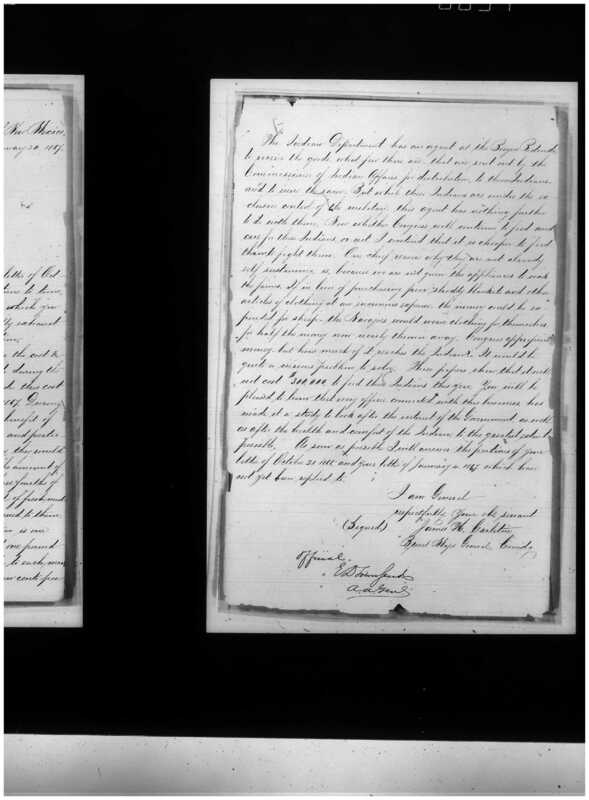 New Mexico,
30. 1867.
letter of Oct
time to time,
which you
the cost &
during the
this cost
1867. During
benefit of
and
they would
the amount of
fourths of
of fresh meat
to them.
is one
one pound
to each man
The Indian Department has an agent at the Bosque Redondo
to receive the goods what few there are, that are sent out by the
Commissioner of Indian Affairs for distribution, to these Indians
and to issue the same. But while these Indians are under the ex
clusive control of the military this agent has nothing further
to do with them. Now whether Congress will continue to feed and
care for these Indians or not I contend that it is cheaper to feed
than to fight them. One chief reason why they are not already
self sustaining is, because we are not given the appliances to work
the farms. If in lieu of purchasing poor shoddy blankets and other
articles of clothing at an enormous expense, the money could be ex
pended for sheep the Navajoes would weave clothing for themselves
for half the money now nearly thrown away. Congress appropriates
money but how much of it reaches the Indians. It would be
quite a curious problem to solve. These papers show that it will
not cost $300,000, to feed these Indians this year. You will be
pleased to learn that every officer connected with this business has
made it a study to look after the interest of the Government, as well
as after the health and comfort of the Indians to the greatest extent
possible. As soon as possible I will answer the portions of your
letter of October 21 1866 and your letter of January 4 1867 which have
not yet been replied to.
I am General
respectfully Your obt servant
(Signed) James H. Carleton
Brevet Major General Comdg
Official.
E D Townsend
A. A. Genl